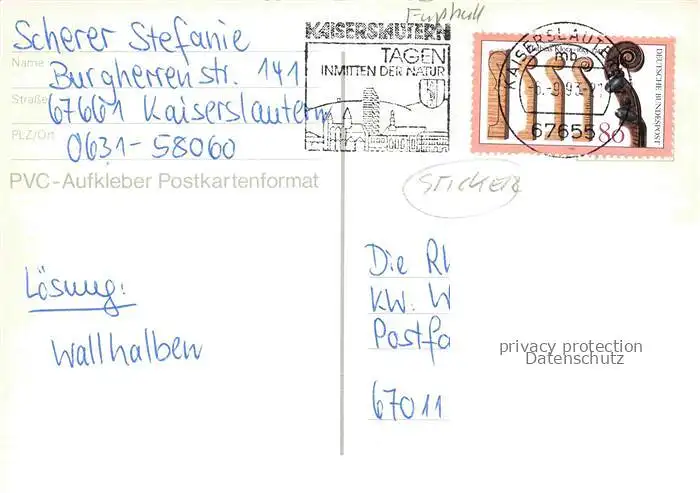 Fußball
Scherer Stefanie
Name
Burgherrenstr. 141
Straße
67661 Kaiserslautern
PLZ/Ort
0631-58060
PVC-Aufkleber Postkartenformat
KAISERSLAUTERN
TAGEN
INMITTEN DER NATUR
KAISERSLAUTE
mb
-9.93-21
67655
80
DEUTSCHE BUNDESPOST
STICKER
Lösung:
Wallhalben
Die Rh
KW: W
Postfa
67011
privacy protection
Datenschutz